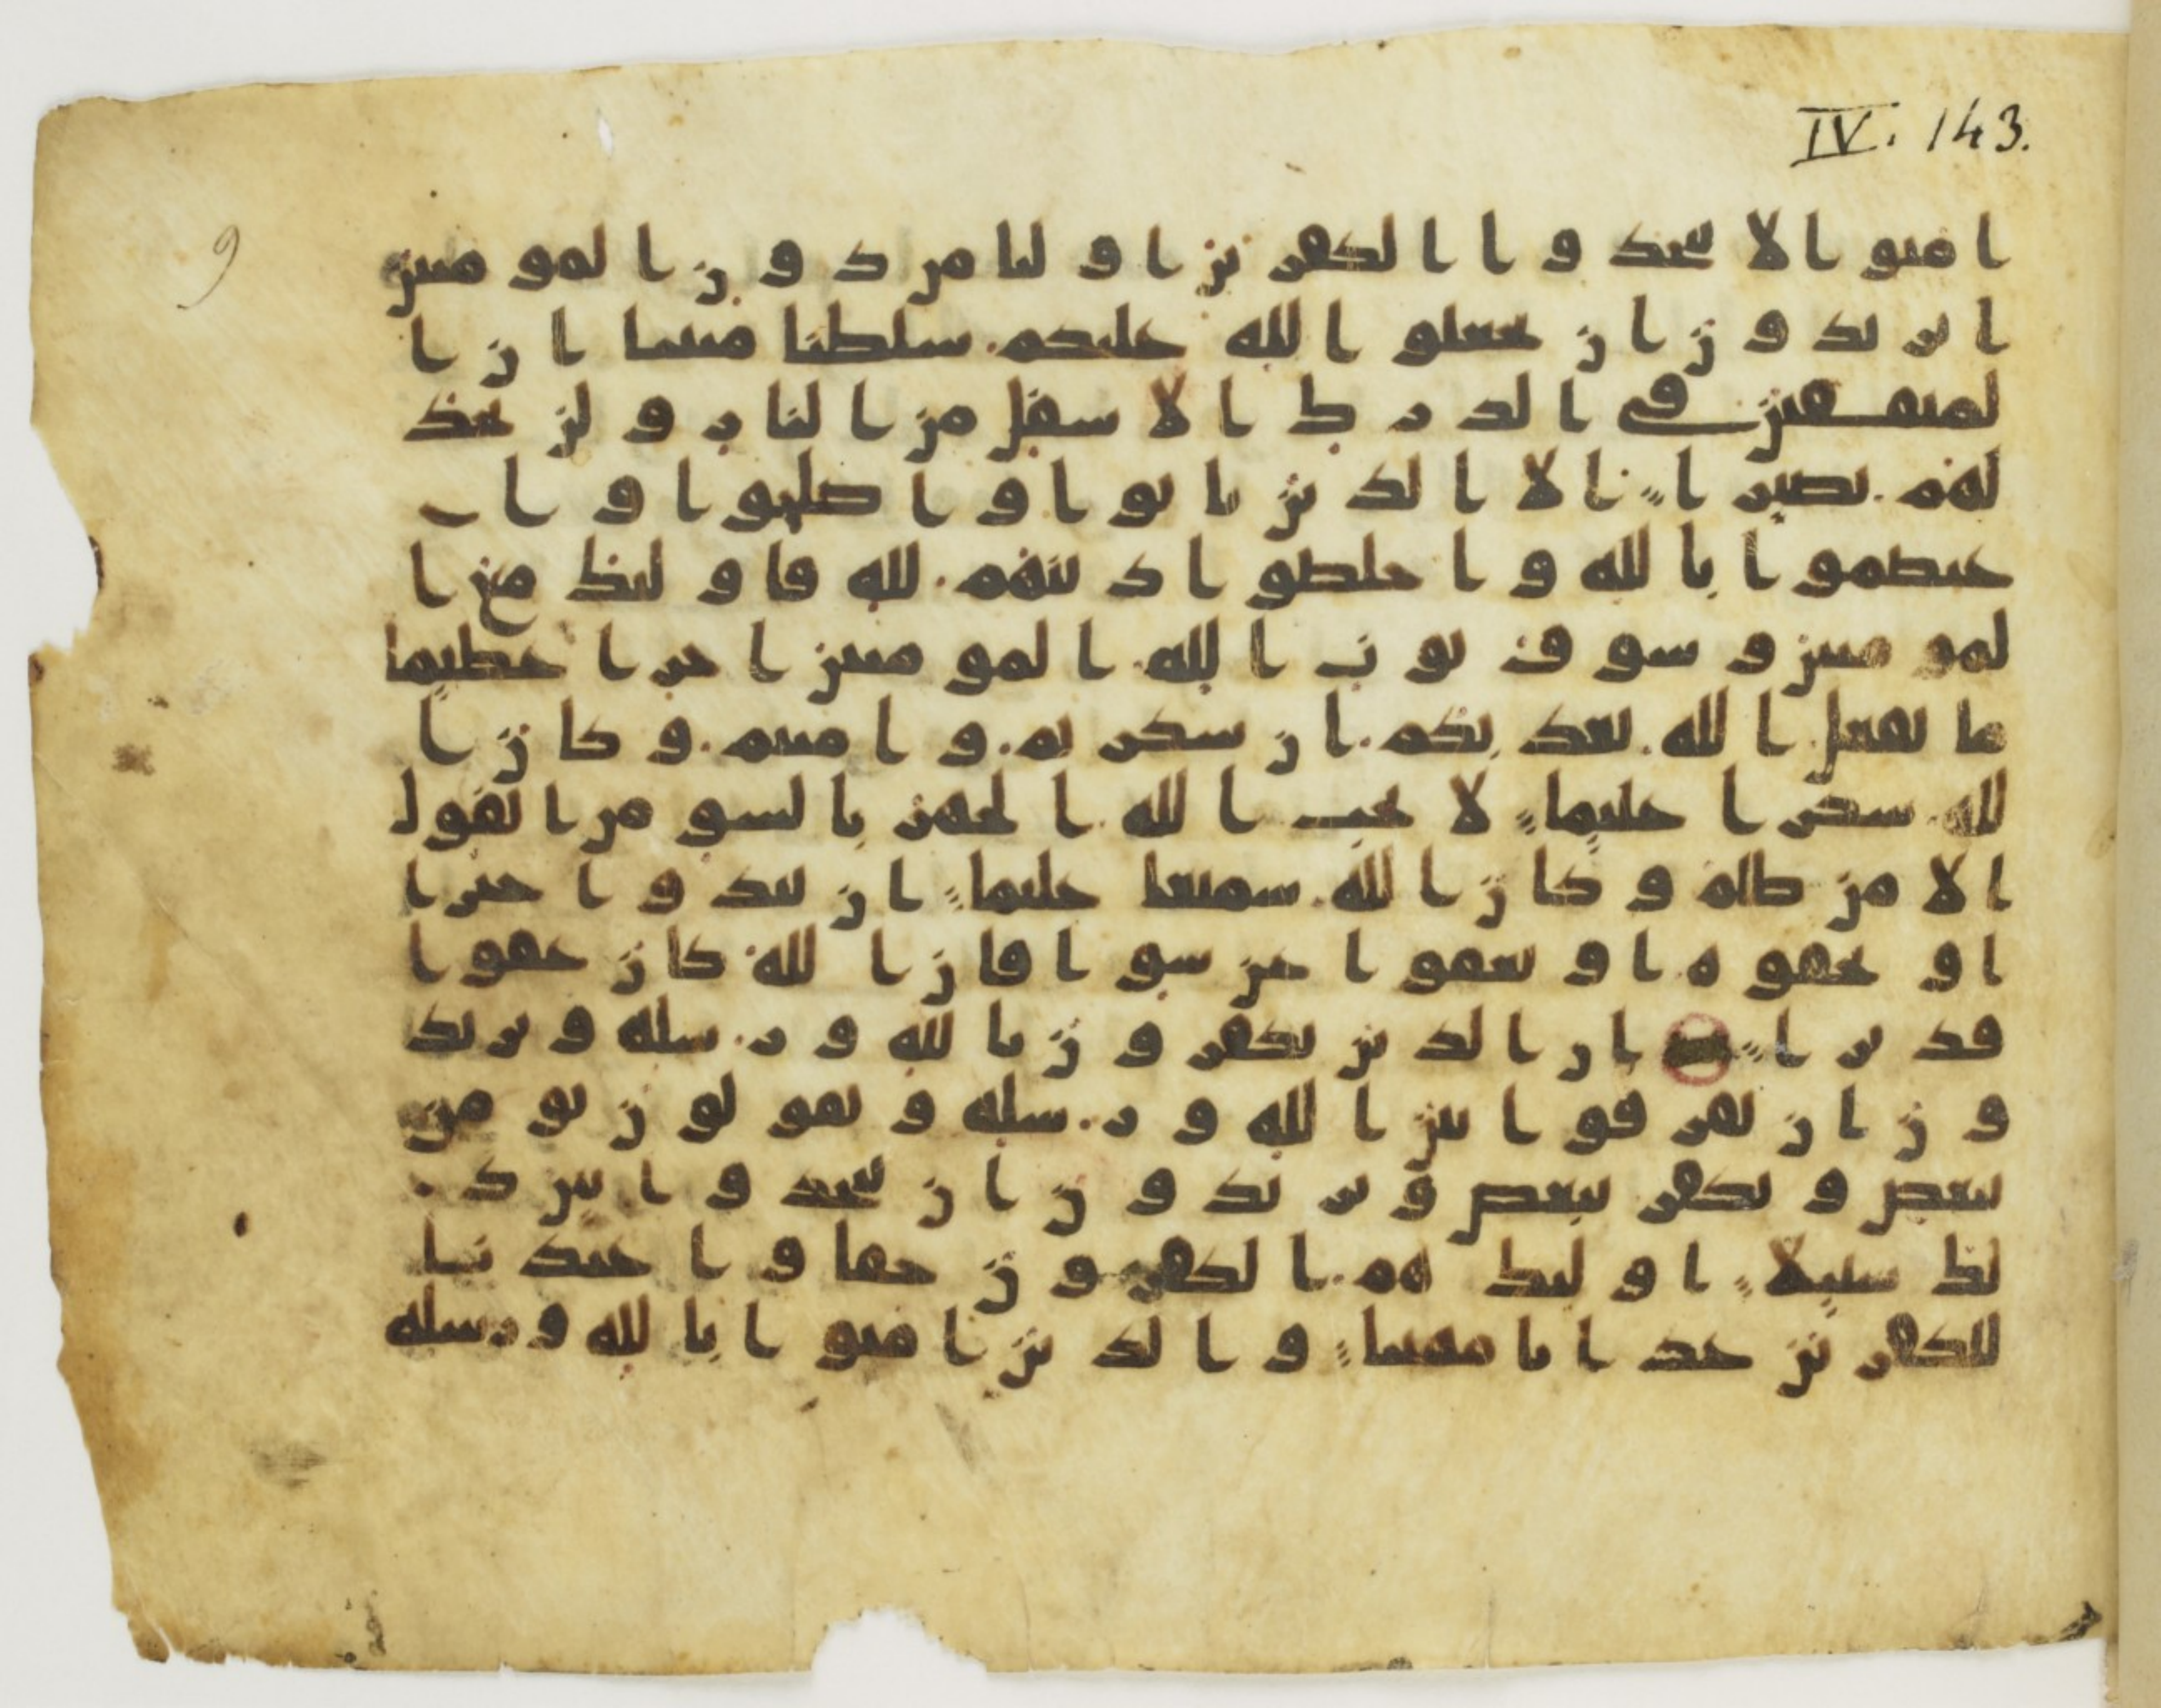 IV. 143.
9
امنوا لا تتخذوا الكفرين اوليا من دون المومنين
اتريدون ان تجعلوا لله عليكم سلطنا مبينا ان ا
لمنفقين في الدرك الاسفل من النار ولن تجد
لهم نصيرا الا الذين تابوا واصلحوا وا
عتصموا بالله واخلصوا دينهم لله فاوليك مع ا
لمومنين وسوف يوت الله المومنين اجرا عظيما
ما يفعل الله بعذابكم ان شكرتم وامنتم وكان ا
لله شكرا عليما لا يحب الله الجهر بالسو من القول
الا من ظلم وكان الله سميعا عليما ان تبدوا خيرا
او تخفوه او تعفوا عن سو فان الله كان عفوا
قديرا ان الذين يكفرون بالله ورسله ويريد
ون ان يفرقوا بين الله ورسله ويقولون نومن
ببعض ونكفر ببعض ويريدون ان يتخذوا بين ذ
لك سبيلا اوليك هم الكفرون حقا واعتدنا
للكفرين عذابا مهينا والذين امنوا بالله ورسله